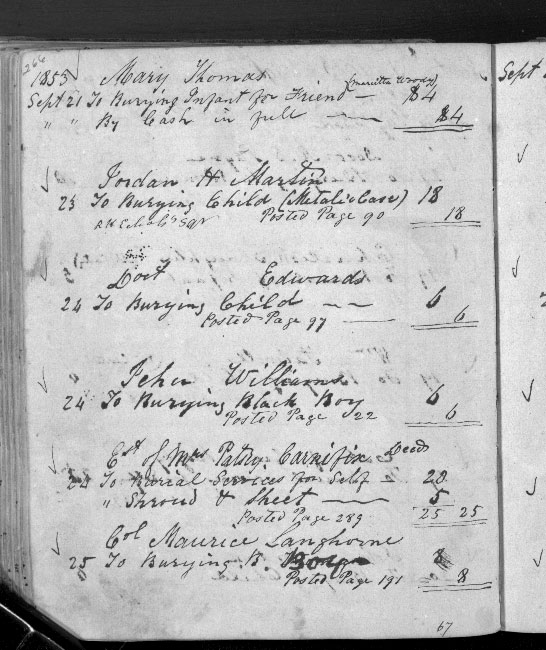 266
1853 Mary Thomas
(Marietta Woody)
Sept 21 To Burying Infant for Friend — $4
" " By Cash in full — $4
Jordan H Martin
23 To Burying Child (Metalic Case) 18
Posted Page 90 18
Doct Edwards
24 To Burying Child — — 6
Posted Page 97 — 6
Jehu Williams
24 To Burying Black Boy 6
Posted Page 22 6
Est of Mrs Patsy Carnifix Decd
24 To Burial Services for Self 20
" Shroud & Sheet — 5
Posted Page 289 25 25
Col Maurice Langhorne
25 To Burying B. 8
Posted Page 191 8
67
Sept